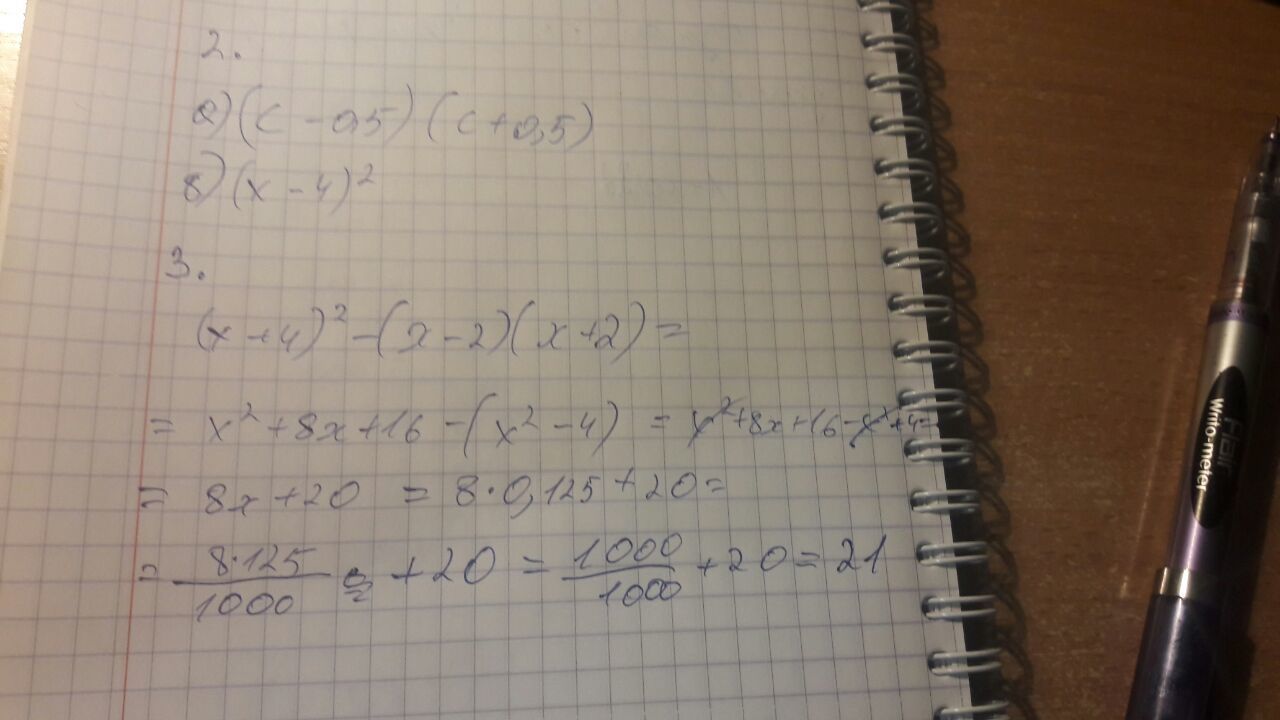 2.
а) (c - 0,5) (c + 0,5)
в) (x - 4)²
3.
(x + 4)² - (x - 2)(x + 2) =
= x² + 8x + 16 - (x² - 4) = x² + 8x + 16 - x² + 4 =
= 8x + 20 = 8 · 0,125 + 20 =
= 8·125/1000 + 20 = 1000/1000 + 20 = 21
Flair
Writo-meter